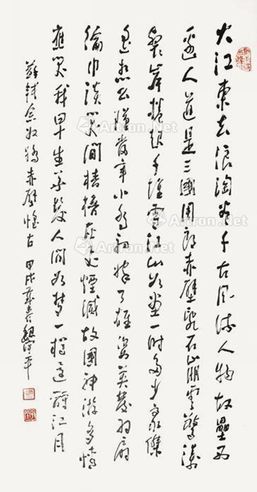 大江東去浪淘尽千古風流人物故壘西
邊人道是三國周郎赤壁亂石崩雲驚濤
裂岸捲起千堆雪江山如畫一時多少豪傑
遙想公瑾當年小喬初嫁了雄姿英發羽扇
綸巾談笑間檣櫓灰飛煙滅故國神遊多情
應笑我早生華髮人間如夢一樽還酹江月
蘇軾念奴嬌赤壁懷古 甲戌
Artron.Net